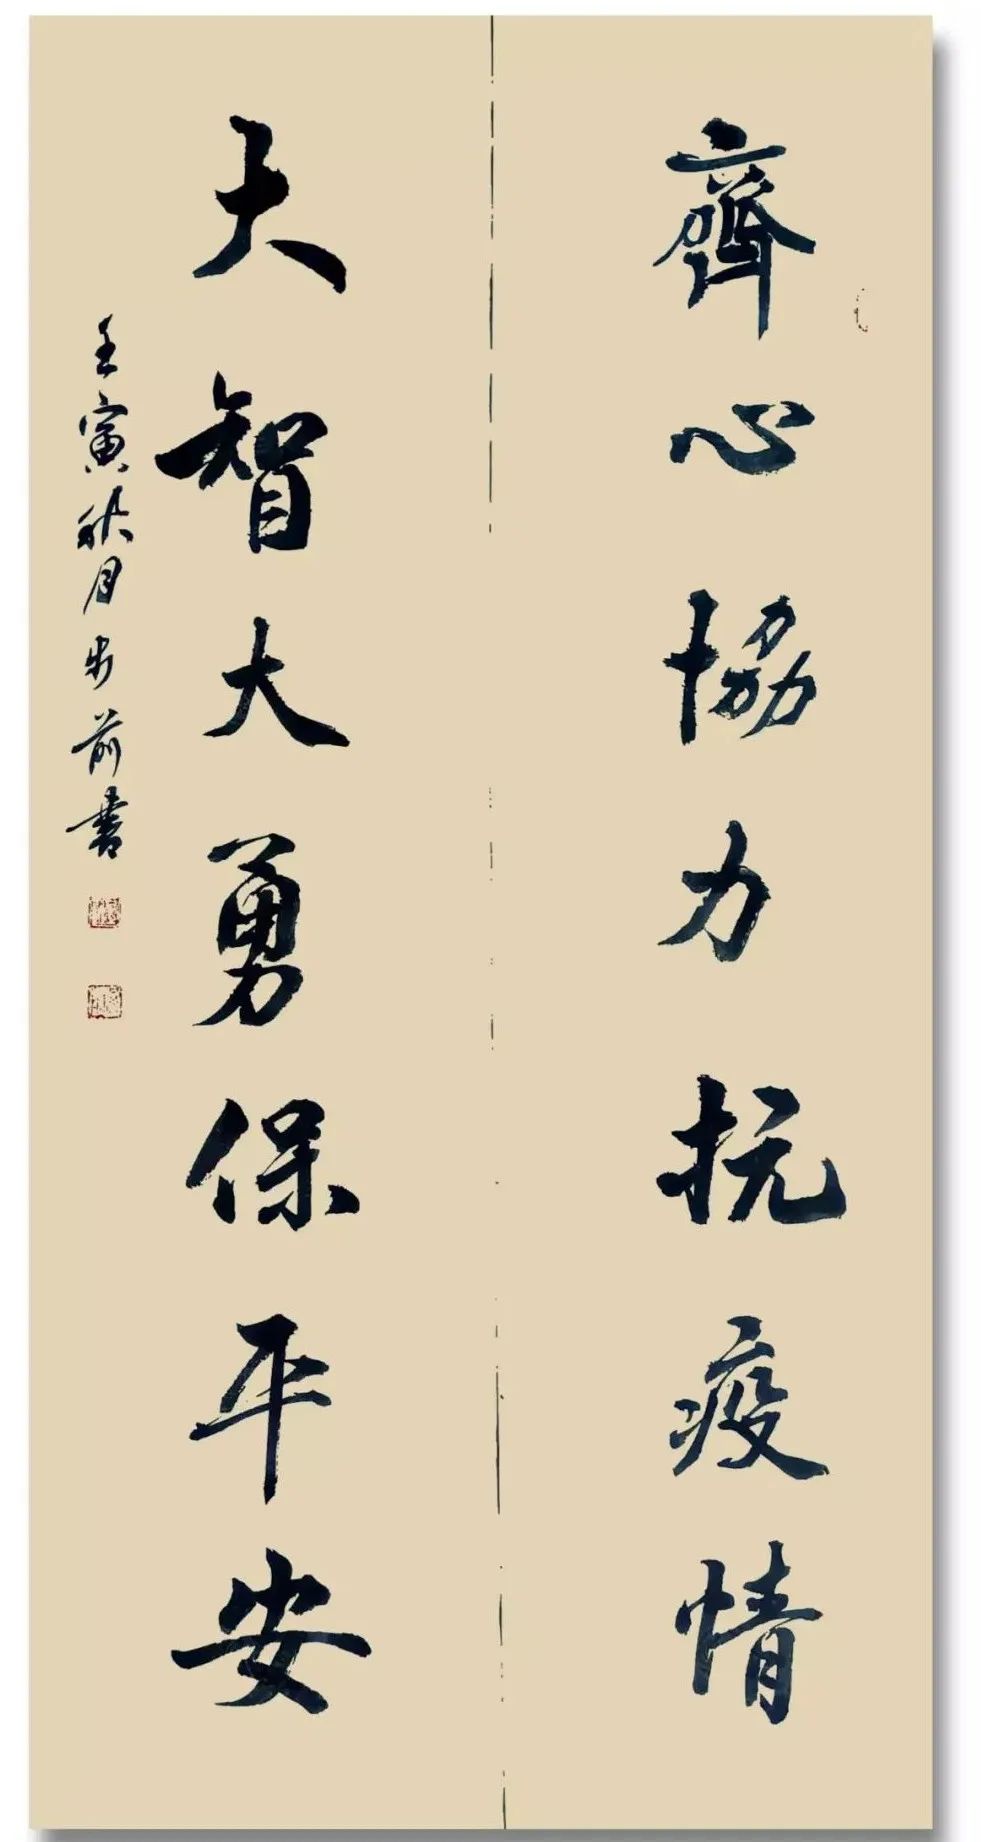 齊心協力抗疫情
大智大勇保平安
壬寅秋月步前書